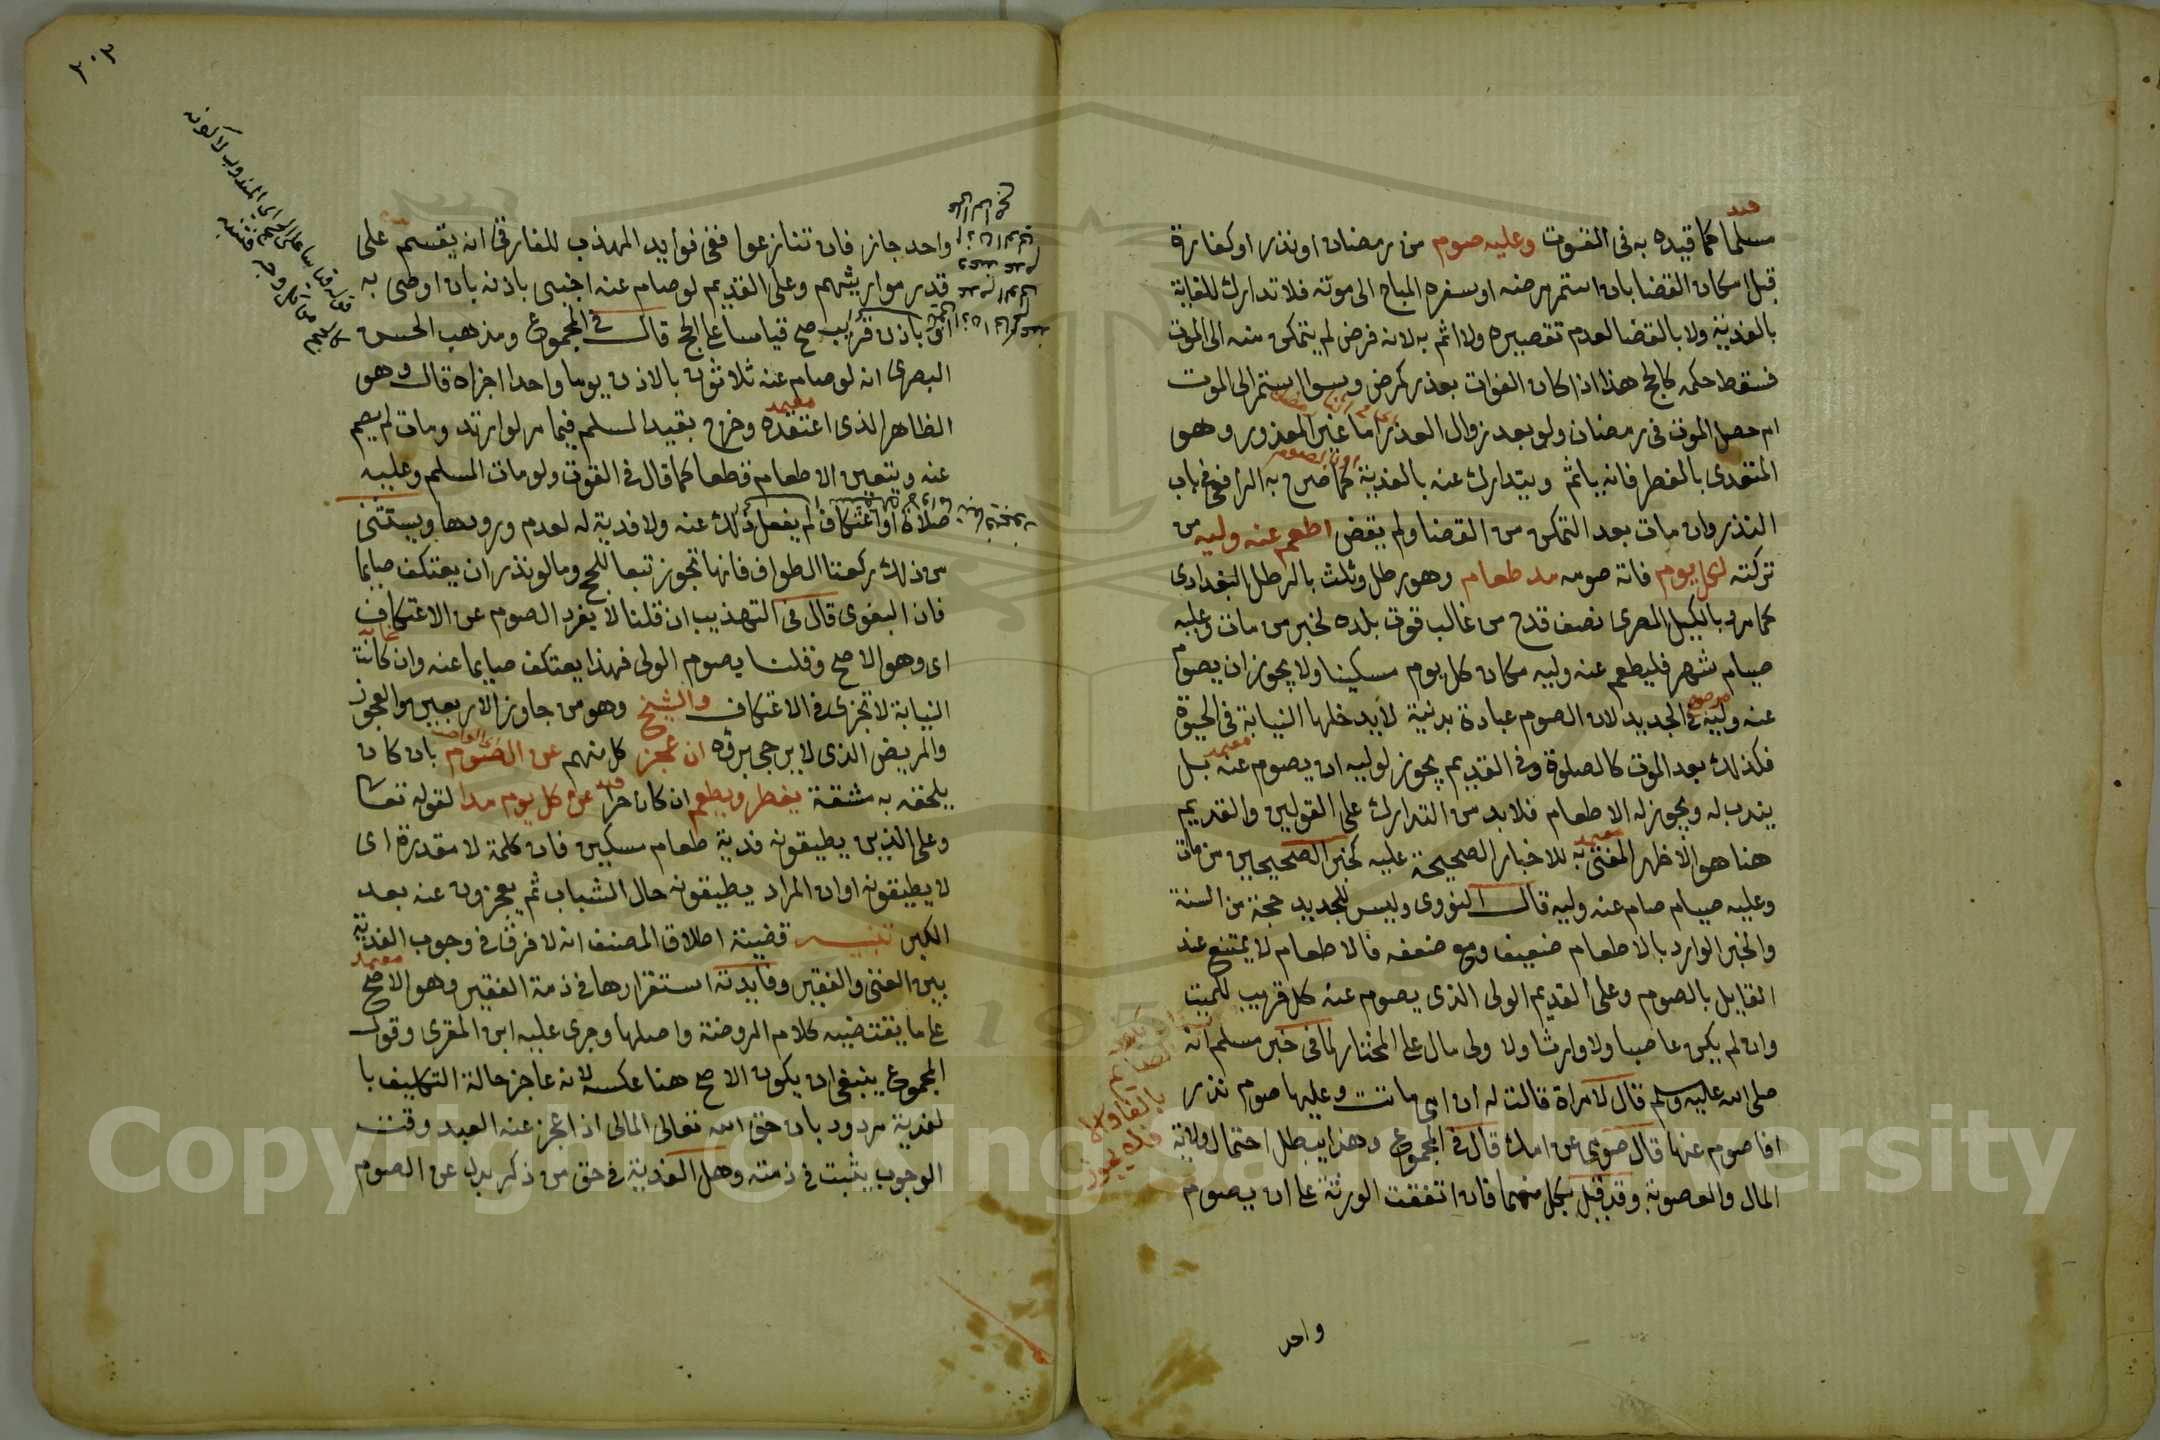 مسلما كما قيده به في القوت وعليه صوم من رمضان او نذر او كفارة
قبل امكان القضا بان استمر مرضه او سفره المباح الى موته فلا تدارك للفايتة
بالفدية ولا بالقضا لعدم تقصيره ولا اثم به لانه فرض لم يتمكن منه الى الموت
فسقط حكمه كالحج هذا اذا كان الفوات بعذر كمرض وسوا استمر الى الموت
ام حصل الموت في رمضان ولو بعد زوال العذر اما غير المعذور وهو
المتعدي بالفطر فانه ياثم ويتدارك عنه بالفدية كما صرح به الرافعي في باب
النذر وان مات بعد التمكن من القضا ولم يقض اطعم عنه وليه من
تركته لكل يوم فاته صومه مد طعام وهو رطل وثلث بالرطل البغدادي
كما مر وبالكيل المصري نصف قدح من غالب قوت بلده لخبر من مات وعليه
صيام شهر فليطعم عنه وليه مكان كل يوم مسكينا ولا يجوز ان يصوم
عنه وليه في الجديد لان الصوم عبادة بدنية لا يدخلها النيابة في الحيوة
فكذلك بعد الموت كالصلوة وفي القديم يجوز لوليه ان يصوم عنه بل
يندب له ويجوز له الاطعام فلا بد من التدارك على القولين والقديم
هنا هو الاظهر المفتى به للاخبار الصحيحة عليه كخبر الصحيحين من مات
وعليه صيام صام عنه وليه قال النووي وليس للجديد حجة من السنة
والخبر الوارد بالاطعام ضعيف ومع ضعفه فالاطعام لا يمتنع عند
القايل بالصوم وعلى القديم الولي الذي يصوم عنه كل قريب للميت
وان لم يكن عاصبا ولا وارثا ولا ولي مال على المختار لما في خبر مسلم انه
صلى الله عليه وسلم قال لامراة قالت له ان امي ماتت وعليها صوم نذر
افاصوم عنها قال صومي عن امك قال في المجموع وهذا يبطل احتمال ولاية
المال والعصوبة وقد قيل بكل منهما فان اتفقت الورثة على ان يصوم
واحد
٢٠٣
واحد جاز فان تنازعوا ففي فوايد المهذب للفارقي انه يقسم على
قدر مواريثهم وعلى القديم لو صام عنه اجنبي باذنه بان اوصى به
او باذن قريب صح قياسا على الحج قال في المجموع ومذهب الحسن
البصري انه لو صام عنه ثلاثون بالاذن يوما واحدا اجزاه قال وهو
الظاهر الذي اعتقده وخرج بقيد المسلم فيما مر لو ارتد ومات لم يصم
عنه ويتعين الاطعام قطعا كما قال في القوت ولو مات المسلم وعليه
صلاة او اعتكاف لم يفعل ذلك عنه ولا فدية له لعدم ورودها ويستثنى
من ذلك ركعتا الطواف فانها تجوز تبعا للحج وما لو نذر ان يعتكف صايما
فان البغوي قال في التهذيب ان قلنا لا يفرد الصوم عن الاعتكاف
اي وهو الاصح وقلنا يصوم الولي فهذا يعتكف صايما عنه وان كانت
النيابة لا تجزي في الاعتكاف والشيخ وهو من جاوز الاربعين والعجوز
والمريض الذي لا يرجى برؤه ان عجز كل منهم عن الصوم بان كان
يلحقه به مشقة يفطر ويطعم ان كان حرا عن كل يوم مدا لقوله تعالى
وعلى الذين يطيقونه فدية طعام مسكين فان كلمة لا مقدرة اي
لا يطيقونه او ان المراد يطيقونه حال الشباب ثم يعجزون عنه بعد
الكبر تنبيه قضية اطلاق المصنف انه لا فرق في وجوب الفدية
بين الغني والفقير وفايدته استقرارها في ذمة الفقير وهو الاصح
على ما يقتضيه كلام الروضة واصلها وجرى عليه ابن المقري وقول
المجموع ينبغي ان يكون الاصح هنا عكسه لانه عاجز حالة التكليف با
لفدية مردود بان حق الله تعالى المالي اذا عجز عنه العبد وقت
الوجوب يثبت في ذمته وهل الفدية في حق من ذكر بدل عن الصوم
Copyright © King Saud University